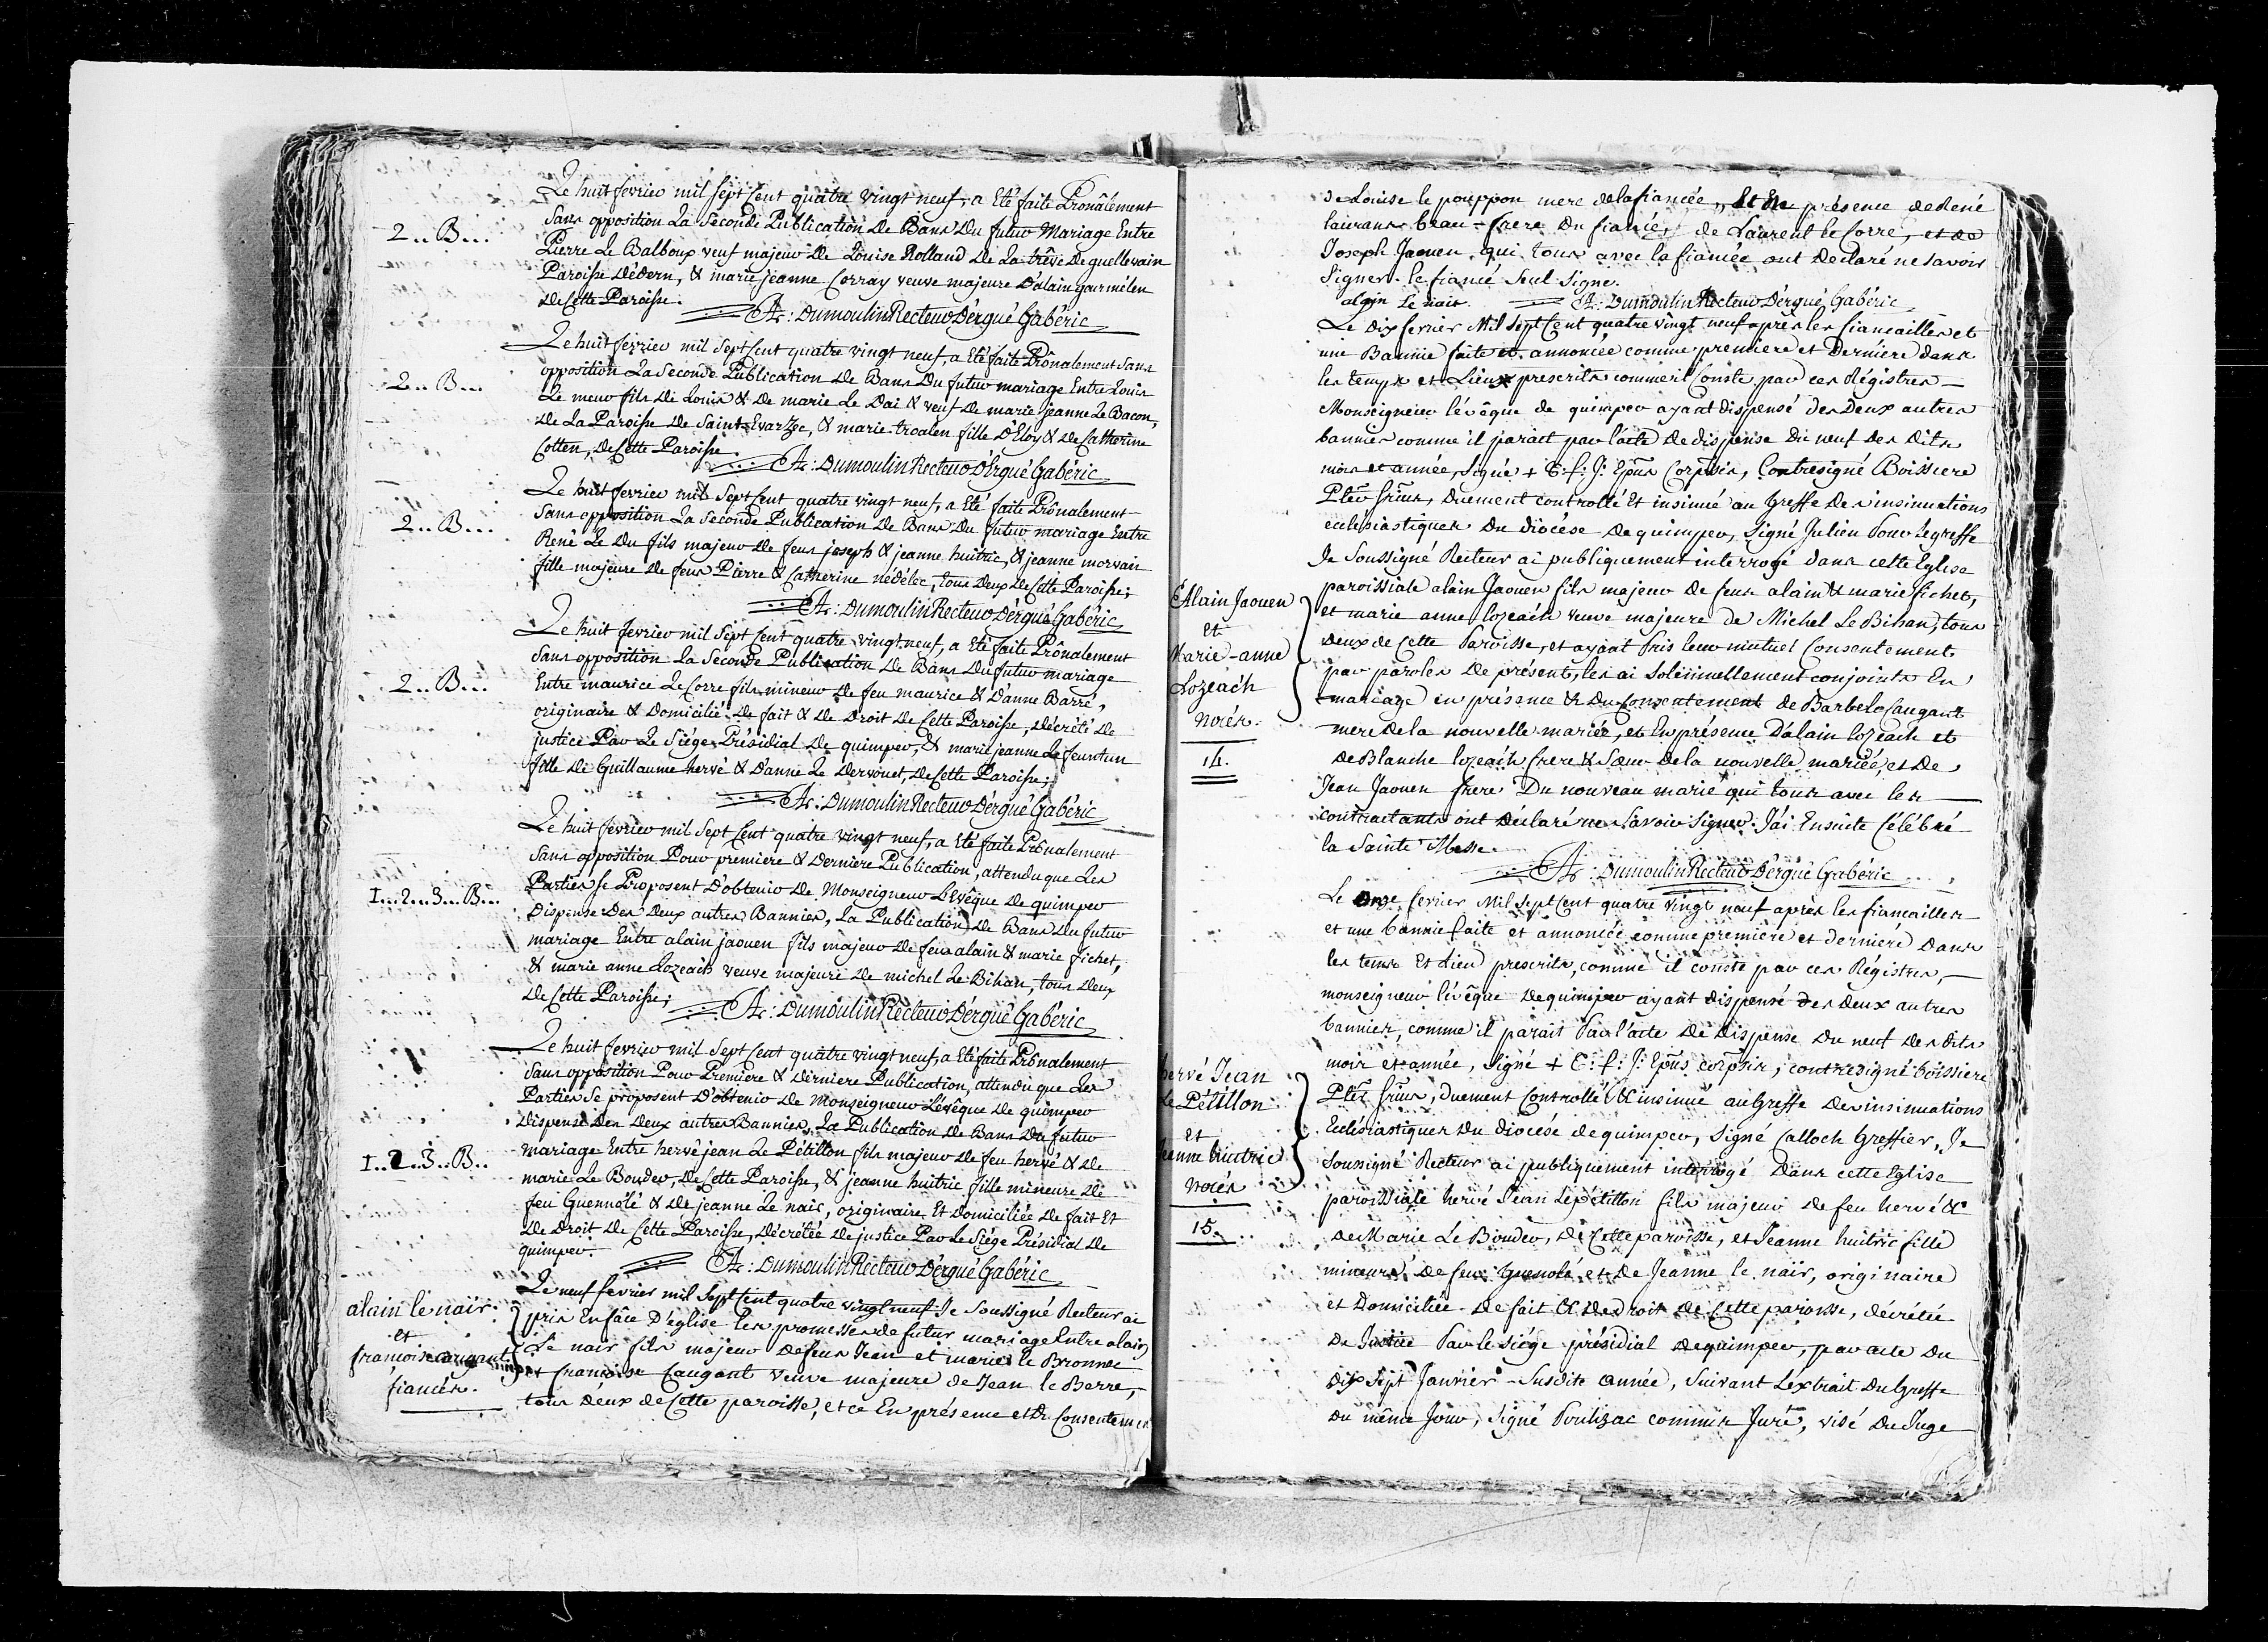 2..B...
Le huit fevrier mil sept Cent quatre vingt neuf, a Eté faite Prônalement
Sans opposition La Seconde Publication De Bans Du futur Mariage Entre
Pierre Le Balboux veuf majeur De Louise Rolland De La trêve De quellevain
Paroisse Dédern, & marie jeanne Corray veuve majeure D'alain gourmélen
De Cette Paroisse.
A: Dumoulin Recteur D'ergué Gabéric
2..B...
Le huit fevrier mil Sept Cent quatre vingt neuf, a Eté faite Prônalement Sans
opposition La Seconde Publication De Bans Du futur mariage Entre Louis
Le meur fils De Louis & De marie Le Dai & veuf De marie jeanne Le Bacon,
De La Paroisse De Saint Evarzec, & marie troalen fille D'Eloy & De Catherine
Cotten, De Cette Paroisse.
A: Dumoulin Recteur D'Ergué Gabéric
2..B...
Le huit fevrier mil Sept Cent quatre vingt neuf, a Eté faite Prônalement
Sans opposition La Seconde Publication De Bans Du futur mariage Entre
René Le Du fils majeur De feus joseph & jeanne huitric, & jeanne morvan
fille majeure De feus Pierre & Catherine nédélec, tous Deux De Cette Paroisse;
A: Dumoulin Recteur D'ergué Gabéric
2..B...
Le huit fevrier mil Sept Cent quatre vingt neuf, a Eté faite Prônalement
Sans opposition La Seconde Publication De Bans Du futur mariage
Entre maurice Le Corre fils mineur De feu maurice & D'anne Barré,
originaire & Domicilié De fait & De Droit De Cette Paroisse, Décrété De
justice Par Le Siége Présidial De quimper, & marie jeanne Le feunteun
fille De Guillaume hervé & D'anne Le Dervouet, De Cette Paroisse;
A: Dumoulin Recteur D'ergué Gabéric
1...2...3...B...
Le huit fevrier mil Sept Cent quatre vingt neuf, a Eté faite Prônalement
Sans opposition Pour premiere & Derniere Publication, attendu que Les
Parties Se Proposent D'obtenir De Monseigneur L'evêque De quimper
Dispense Des Deux autres Bannies, La Publication De Bans Du futur
mariage Entre alain jaouen fils majeur De feus alain & marie fichet,
& marie anne Lozeach veuve majeure De michel Le Bihan, tous Deux
De Cette Paroisse;
A: Dumoulin Recteur D'ergué Gabéric
1..2..3..B..
Le huit fevrier mil Sept Cent quatre vingt neuf, a Eté faite Prônalement
Sans opposition Pour Premiere & Derniere Publication, attendu que Les
Parties Se proposent D'obtenir De Monseigneur L'évêque De quimper
Dispense Des Deux autres Bannies, La Publication De Bans Du futur
mariage Entre hervé jean Le Pétillon fils majeur De feu hervé & De
marie Le Bouder, De Cette Paroisse, & jeanne huitric fille mineure De
feu Guennolé & De jeanne Le nair, originaire Et Domiciliée De fait Et
De Droit De Cette Paroisse, Décrétée De justice Par Le Siége Présidial De
quimper.
A: Dumoulin Recteur D'ergué Gabéric
alain le nair
et
francoise caugant
fiancés.
Le neuf fevrier mil Sept Cent quatre vingt neuf Je Soussigné Recteur ai
pris En face D'église les promesses de futur mariage Entre alain
Le nair fils majeur De feus Jean et marie le Bronnec
et francoise Caugant veuve majeure de Jean le Berre,
tous deux de Cette paroisse, et ce En présence et Du Consentement
de Louise le pouppon mere de la fiancée, Et En présence de René
laurans beau-frere Du fiancé, de Laurent le Corre, et de
Joseph Jaouen, qui tous avec la fiancée ont Declaré ne savoir
Signer. le fiancé Seul Signe.
alain Le nair.
A: Dumoulin Recteur D'ergué Gabéric
Le Dix fevrier Mil Sept Cent quatre vingt neuf après les fiancailles et
une Bannie faite et annoncée comme premiere et Derniere dans
les temps et Lieux prescrits comme il Conste par ces Régistres
Monseigneur l'évêque de quimper ayant dispensé des Deux autres
bannies comme il parait par l'acte De dispense Du neuf Des Dits
mois et année, Signé + T: f: J: Epûs Corpsis, Contresigné Boissiere
Pter srius, Duement controllé Et insinué au Greffe Des insinuations
eclesiastiques Du diocése de quimper, Signé Julien Pour le greffe
Je Soussigné Recteur ai publiquement interrogé dans cette Eglise
paroissiale alain Jaouen fils majeur De feus alain & marie fichet,
et marie anne lozeach veuve majeure De Michel Le Bihan, tous
deux de Cette Paroisse, et ayant Pris leur mutuel Consentement
par paroles De présent, les ai Solemnellement conjoints En
mariage en présence & Du Consentement de Barbe Le Caugant
mere de la nouvelle mariée, et En présence D'alain lozeach et
De Blanche lozeach frere & Sœur de la nouvelle mariée, et De
Jean Jaouen frere Du nouveau marié qui tous avec les
contractants ont déclaré ne Savoir Signer. J'ai Ensuite Célébré
la Sainte Messe.
A: Dumoulin Recteur D'ergué Gabéric
Alain Jaouen
Et
Marie-anne
Lozeach
noces.
14.
Le onze fevrier Mil Sept Cent quatre vingt neuf après les fiancailles
et une bannie faite et annoncée comme premiere et derniere Dans
les tems Et Lieu prescrits, comme il conste par ces Régistres,
monseigneur l'évêque De quimper ayant dispensé des Deux autres
bannies, comme il parait Par l'acte De Dispense Du neuf Des dits
mois et année, Signé + T: f: J: Epûs corpsis, contresigné boissiere
Ptet srius, Duement Controllé & insinué au Greffe Des insinuations
Eclésiastiques Du diocése de quimper, Signé Calloch Greffier, Je
Soussigné Recteur ai publiquement interrogé Dans cette Eglise
paroissiale hervé Jean Le pétillon fils majeur De feu hervé &
de Marie Le Bouder, De Cette paroisse, et Jeanne huitric fille
mineure De feu Guenolé et De Jeanne le nair, originaire
et Domiciliée De fait & De Droit De Cette paroisse, décrétée
De Justice Par le siége présidial de quimper, par acte Du
dix Sept Janvier Susdite année, Suivant L'extrait Du Greffe
Du même Jour, Signé Poulizac commis Juré, visé Du Juge
hervé Jean
Le Pétillon
et
Jeanne huitric
noces
15.